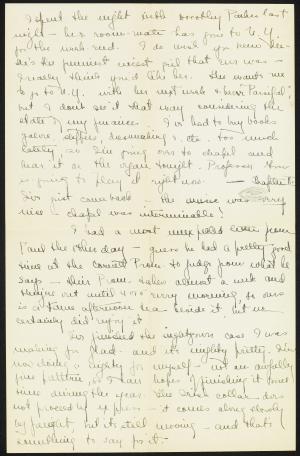 I spent the night with Dorothy Parker last
night - her room-mate has gone to N.Y.
for the week-end. I do wish you knew her -
she's the funniest nicest girl that ever was -
I really think you'd like her. She wants me
to go to N.Y. with her next week & hear Parsifal,
but I don't see it that way considering the
state of my finances. I've had to buy books
galore, slippers, dressmaking & etc. too much
lately. So I'm going over to chapel and
hear it on the organ tonight. Professor
is going to play it right now. -
I've just come back - the music was very
nice - chapel was interminable!
I had a most unexpected letter from
Paul the other day - guess he had a pretty good
time at the Cornell Prom to judge from what he
says - their Prom takes almost a week and
things out until 4:00 every morning, so ours
is a tame afternoon tea beside it, but we
certainly did enjoy it.
I've finished the nightgown case I was
making for Glad - and it's mighty pretty. I'm
now doing a nighty for myself - not an awfully
fine pattern, so I have hopes of finishing it some
time during the year. The Irish collar - does
not proceed by express - it comes along slowly
by freight, but it's still moving - and that's
something to say for it.